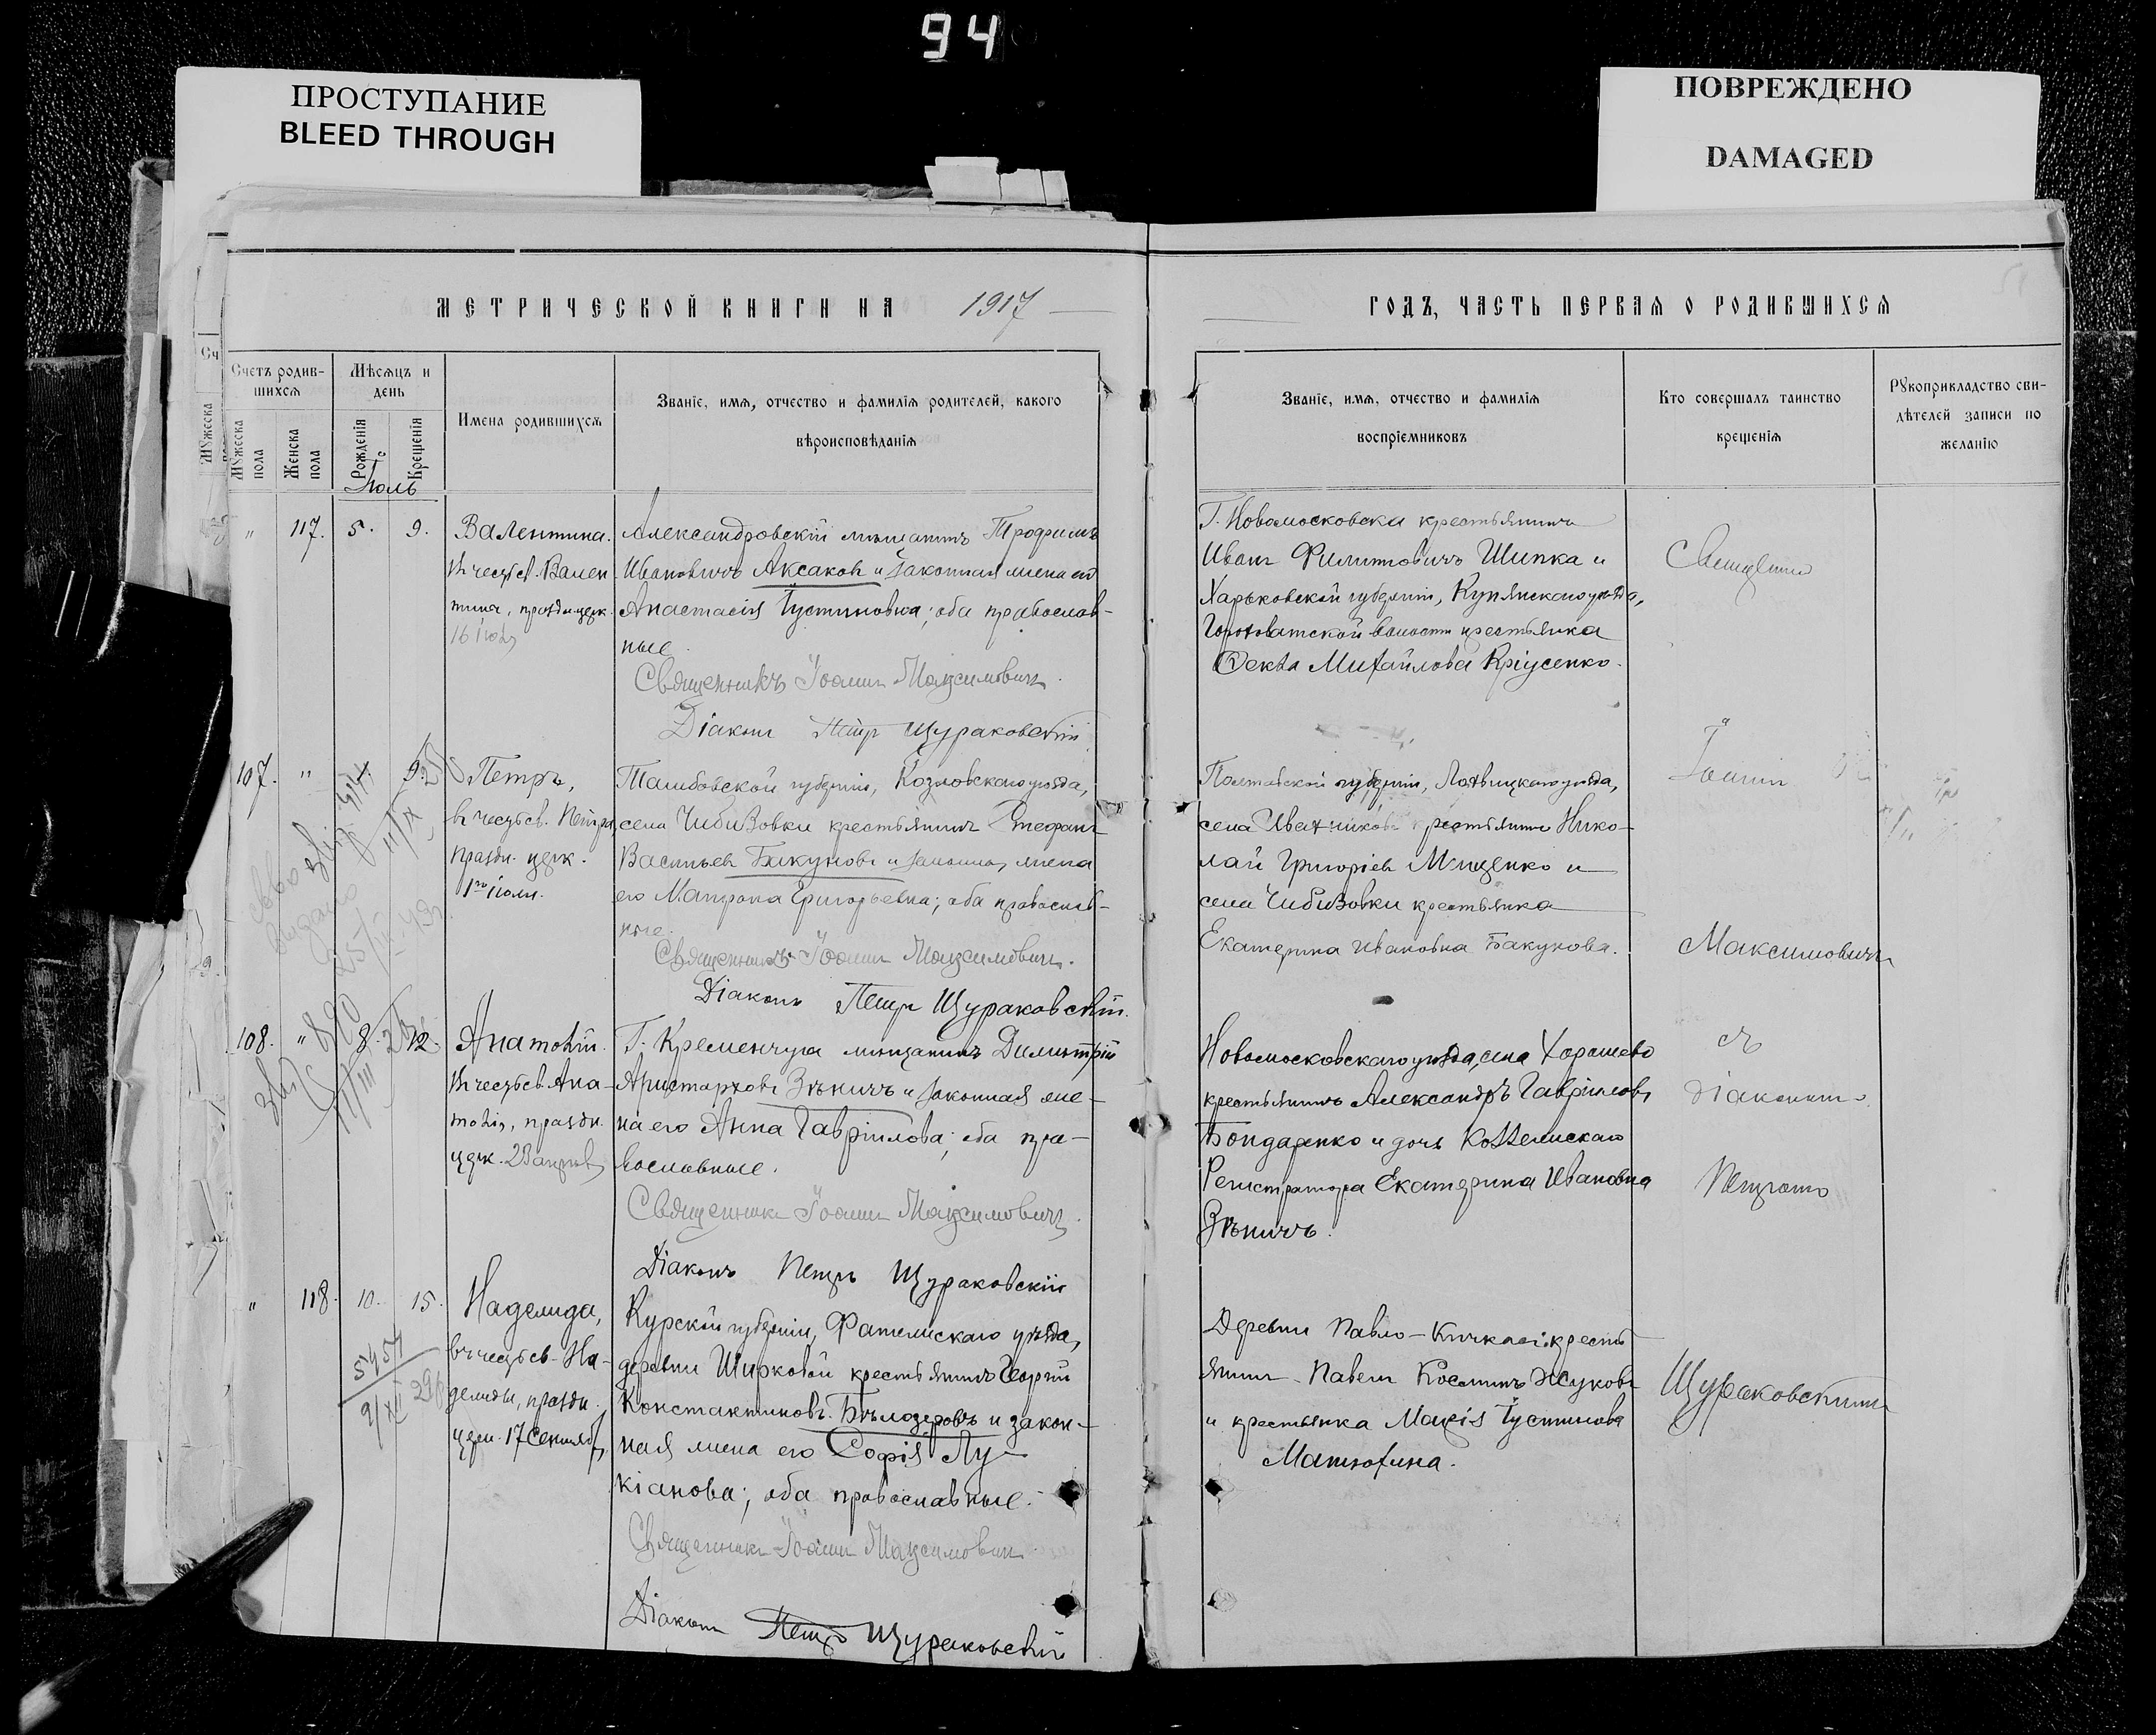 94
ПРОСТУПАНИЕ
BLEED THROUGH
ПОВРЕЖДЕНО
DAMAGED
МЕТРИЧЕСКОЙ КНИГИ НА 1917
ГОДЪ, ЧАСТЬ ПЕРВАЯ О РОДИВШИХСЯ
Счетъ родив-
шихся
Мужеска
пола
Женска
пола
Мѣсяцъ и
день
Рожденія
Крещенія
Имена родившихся
Званіе, имя, отчество и фамилія родителей, какого
вѣроисповѣданія
Званіе, имя, отчество и фамилія
воспріемниковъ
Кто совершалъ таинство
крещенія
Рукоприкладство сви-
дѣтелей записи по
желанію
Іюль
" 117. 5. 9.
Валентина.
Въ честь св. Вален
тины, праздн. церк.
16 Іюля
Александровскій мѣщанинъ Трофимъ
Ивановичъ Аксаковъ и законная жена его
Анастасія Іустиновна; оба православ-
ные.
Священникъ Іоаннъ Максимовичъ.
Діаконъ Петръ Щураковскій
Г. Новомосковска крестьянинъ
Иванъ Филиповичъ Шипка и
Харьковской губерніи, Купянскаго уѣзда,
волости крестьянка
Ѳекла Михайлова
Священникъ
107. " 9.
Петръ,
въ честь св. Петра,
праздн. церк.
1го Іюля.
Тамбовской губерніи, Козловскаго уѣзда,
села Чибизовки крестьянинъ Стефанъ
Васильевъ Бакуновъ и законная жена
его Матрона Григорьевна; оба православ-
ные.
Священникъ Іоаннъ Максимовичъ.
Діаконъ Петръ Щураковскій.
Полтавской губерніи, Лохвицкаго уѣзда,
села крестьянинъ Нико-
лай Григоріевъ Мищенко и
села Чибизовки крестьянка
Екатерина Ивановна Бакунова.
Іоаннъ
Максимовичъ
108. " 8. 12.
Анатолій.
Въ честь св. Ана-
толія, праздн.
церк. 23 апрѣля
Г. Кременчуга мѣщанинъ Димитрій
Аристарховъ Зѣничъ и законная же-
на его Анна Гавріилова; оба пра-
вославные.
Священникъ Іоаннъ Максимовичъ.
Діаконъ Петръ Щураковскій
Новомосковскаго уѣзда, села Хорошево
крестьянинъ Александръ Гавріиловъ
Бондаренко и дочь Коллежскаго
Регистратора Екатерина Ивановна
Зѣничъ.
съ
діакономъ
Петромъ
" 118. 10. 15.
Надежда,
въ честь св. На-
дежды, праздн.
церк. 17 Сентября
Курской губерніи, Фатежскаго уѣзда,
деревни Ширковой крестьянинъ Георгій
Константиновъ Бѣлозеровъ и закон-
ная жена его Софія Лу-
кіанова; оба православные.
Священникъ Іоаннъ Максимовичъ
Діаконъ Петръ Щураковскій
Деревни Павло-Кичкасъ крестья
янинъ Павелъ Косминъ Жуковъ
и крестьянка Марія Іустинова
Матюхина.
Щураковскимъ